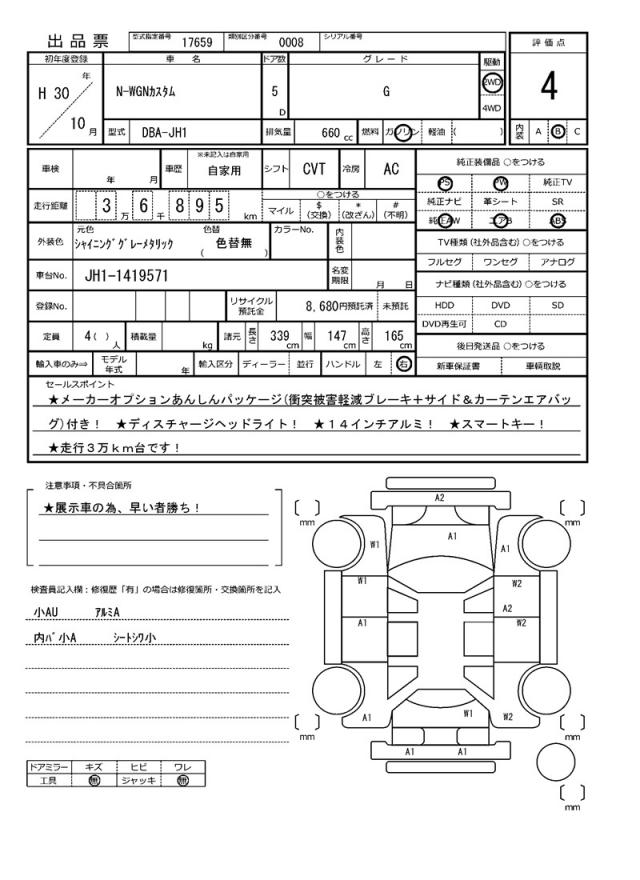 出品票 型式指定番号 17659 類別区分番号 0008 シリアル番号
評価点
4
初年度登録 車名 ドア数 グレード 駆動
H 30 年 10 月
N-WGNカスタム 5 D G
2WD
4WD
型式 DBA-JH1 排気量 660 cc 燃料 ガソリン 軽油 ( )
内装 A B C
車検 年 月 車歴 ※未記入は自家用 自家用 シフト CVT 冷房 AC
走行距離 3 万 6 千 8 9 5 km
○をつける
マイル $ (交換) * (改ざん) # (不明)
外装色 元色 シャイニンググレーメタリック 色替 ( 色替無 ) カラーNo. 内装色
車台No. JH1-1419571 名変期限 月 日
登録No. リサイクル預託金 8,680円預託済 未預託
定員 4 ( ) 人 積載量 kg 諸元 長さ 339 cm 幅 147 cm 高さ 165 cm
輸入車のみ⇒ モデル年式 年 輸入区分 ディーラー 並行 ハンドル 左 右
純正装備品 ○をつける
PS PW 純正TV
純正ナビ 革シート SR
純正AW エアB ABS
TV種類(社外品含む) ○をつける
フルセグ ワンセグ アナログ
ナビ種類(社外品含む) ○をつける
HDD DVD SD
DVD再生可 CD
後日発送品 ○をつける
新車保証書 車輌取説
セールスポイント
★メーカーオプションあんしんパッケージ(衝突被害軽減ブレーキ+サイド&カーテンエアバッ
グ)付き! ★ディスチャージヘッドライト! ★14インチアルミ! ★スマートキー!
★走行3万km台です!
注意事項・不具合箇所
★展示車の為、早い者勝ち!
検査員記入欄:修復歴「有」の場合は修復箇所・交換箇所を記入
小AU アルミA
内バ小A シートシワ小
ドアミラー キズ ヒビ ワレ
工具 無 ジャッキ 無
A2
mm mm
W1 A1 A1
W1 W2
A2
A1 W2
A1 W1 W2
mm mm
A1 A1
mm